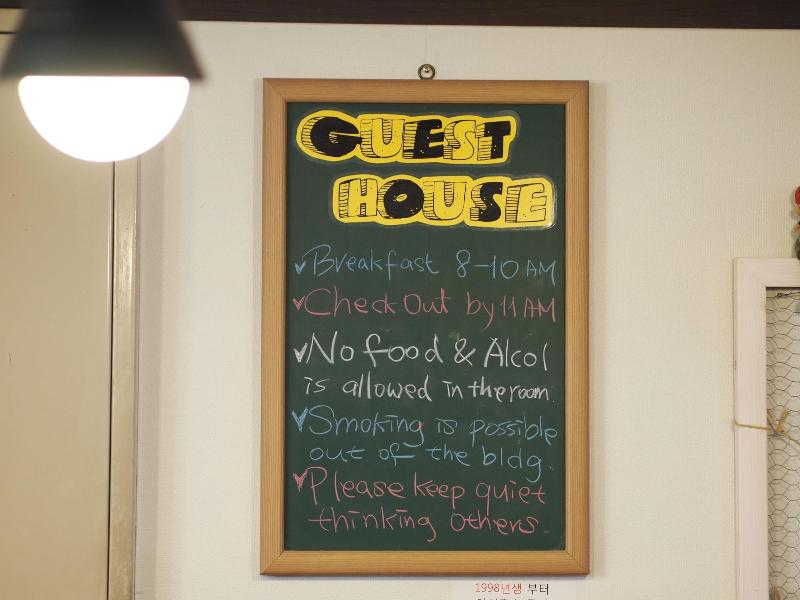 GUEST
HOUSE
✓Breakfast 8-10 AM
✓Check Out by 11 AM
✓No food & Alcol
is allowed in the room.
✓Smoking is possible
out of the bldg.
✓Please keep quiet
thinking others.
1998년생 부터